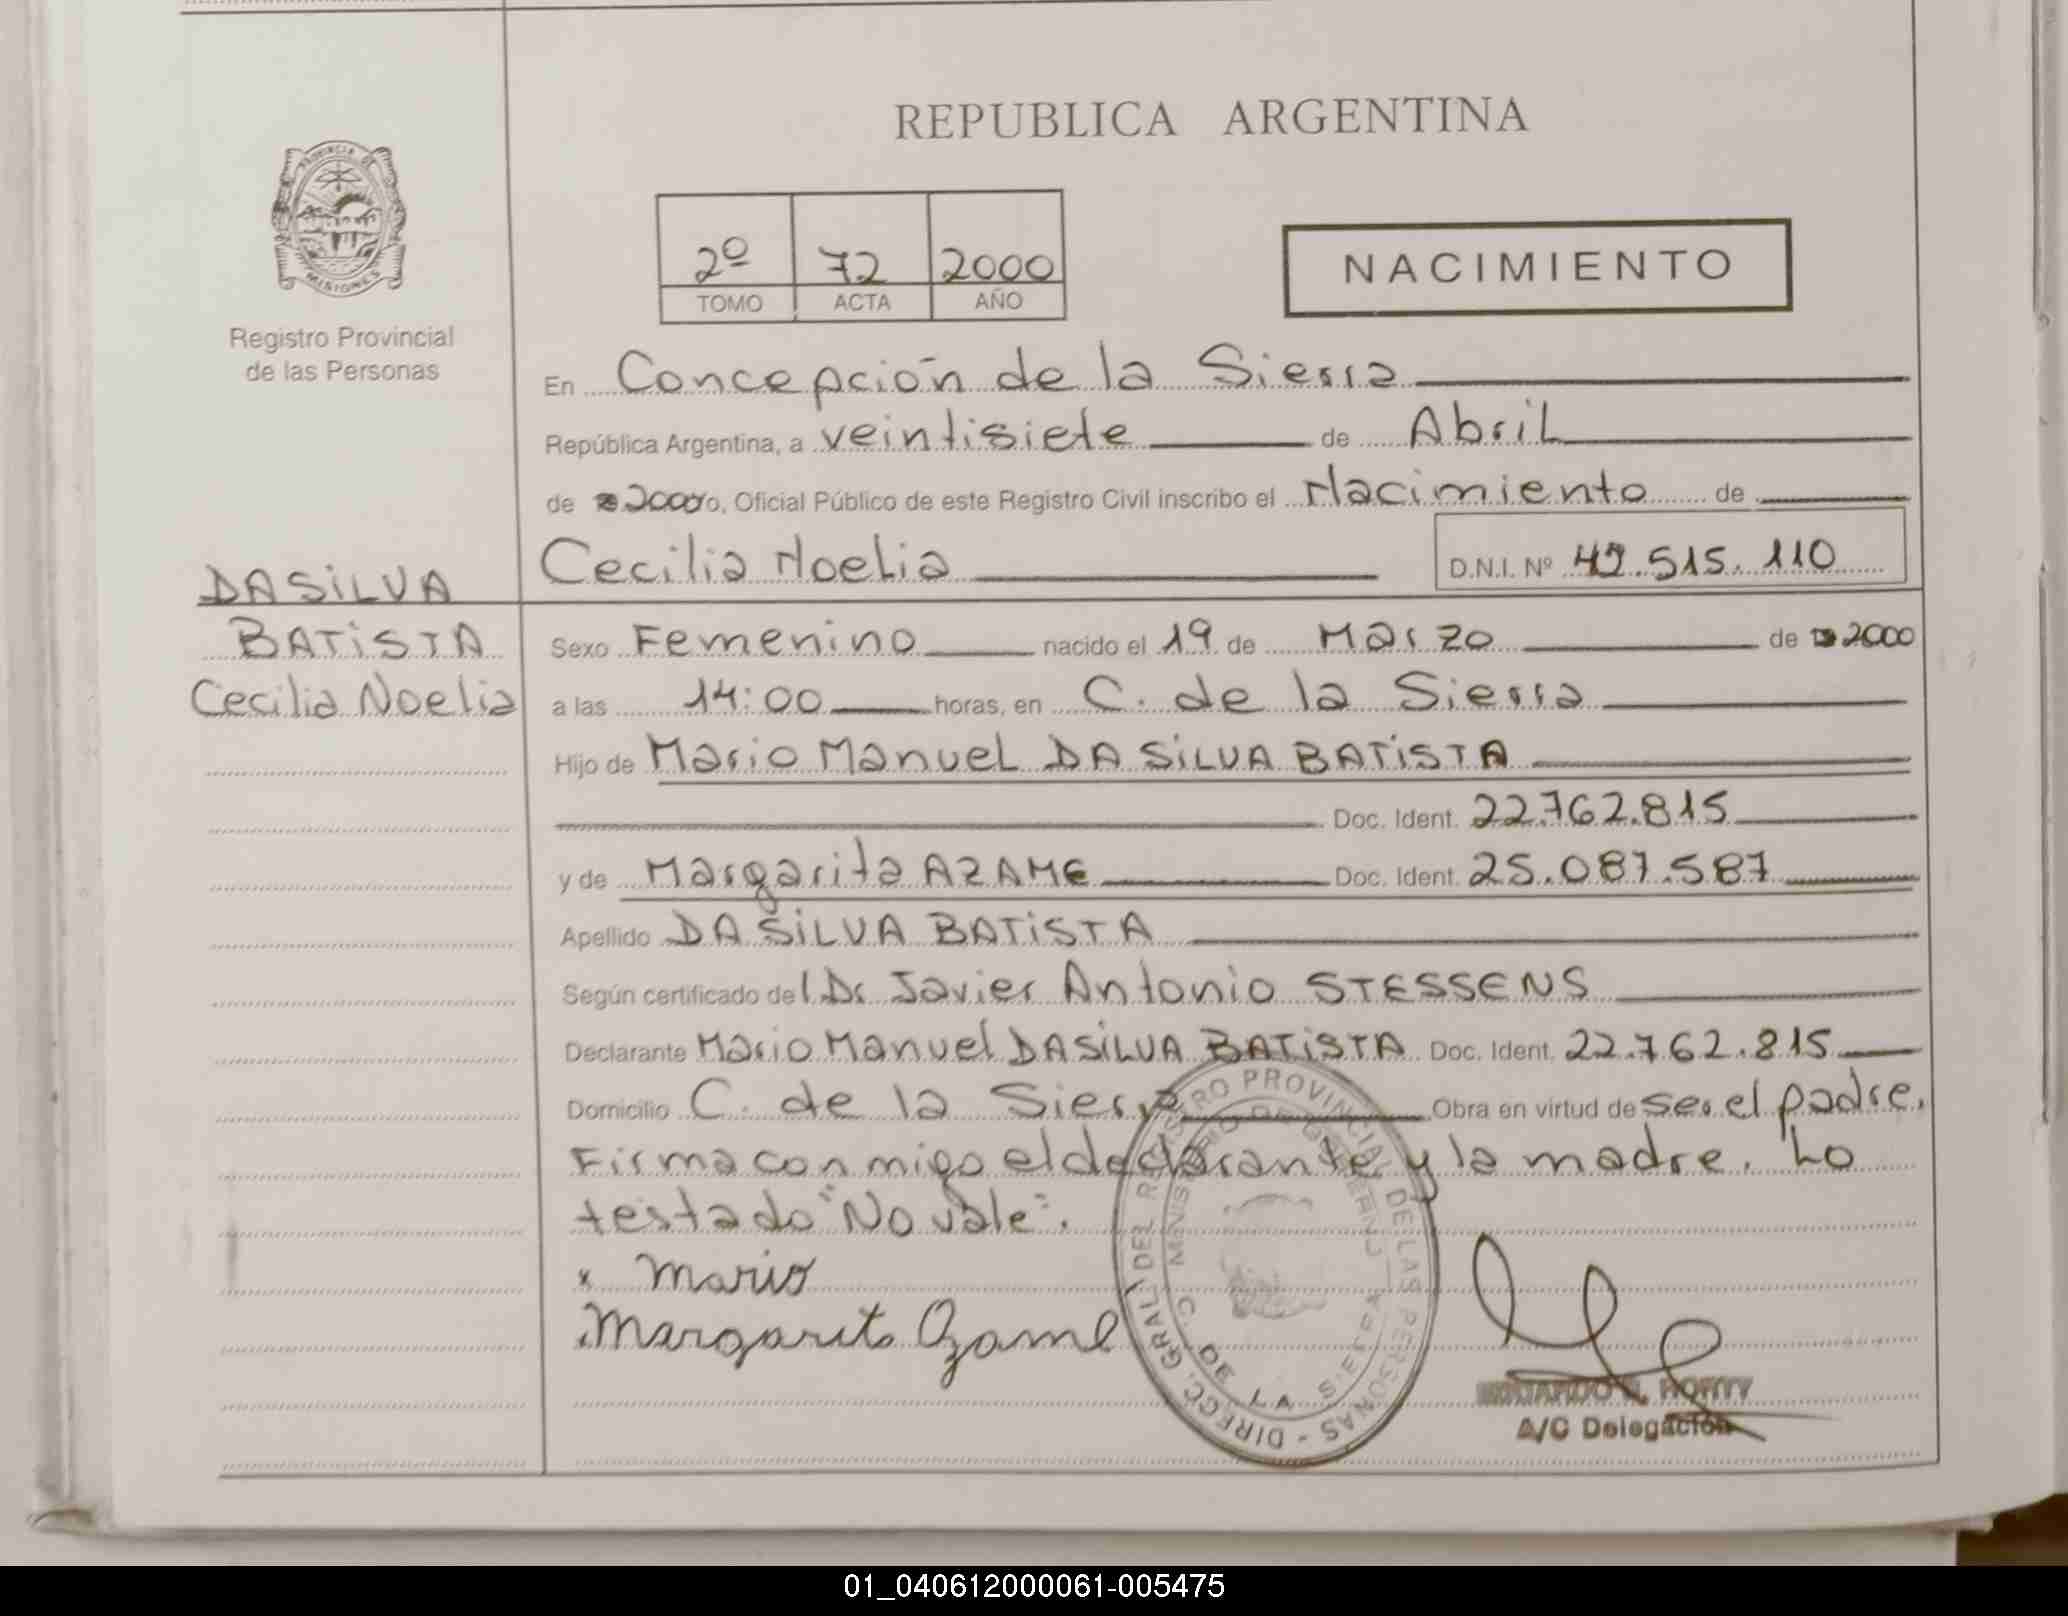 REPUBLICA ARGENTINA
PROVINCIA DE
MISIONES
Registro Provincial
de las Personas
2º 72 2000
TOMO ACTA AÑO
NACIMIENTO
En Concepción de la Sierra
República Argentina, a veintisiete de Abril
de 2000 yo, Oficial Público de este Registro Civil inscribo el Nacimiento de
Cecilia Noelia D.N.I. Nº 42.515.110
DA SILVA
BATISTA
Cecilia Noelia
Sexo Femenino nacido el 19 de Marzo de 2000
a las 14:00 horas, en C. de la Sierra
Hijo de Mario Manuel DA SILVA BATISTA
Doc. Ident. 22.762.815
y de Margarita AZAME Doc. Ident. 25.087.587
Apellido DA SILVA BATISTA
Según certificado del Dr Javier Antonio STESSENS
Declarante Mario Manuel DA SILVA BATISTA Doc. Ident. 22.762.815
Domicilio C. de la Sierra Obra en virtud de ser el padre.
Firma conmigo el declarante y la madre. Lo
testado "No vale".
x Mario
Margarita Azame
DIRECC. GRAL. DEL REGISTRO PROVINCIAL DE LAS PERSONAS
MINISTERIO DE GOBIERNO
C. DE LA SIERRA
A/C Delegación
01_040612000061-005475